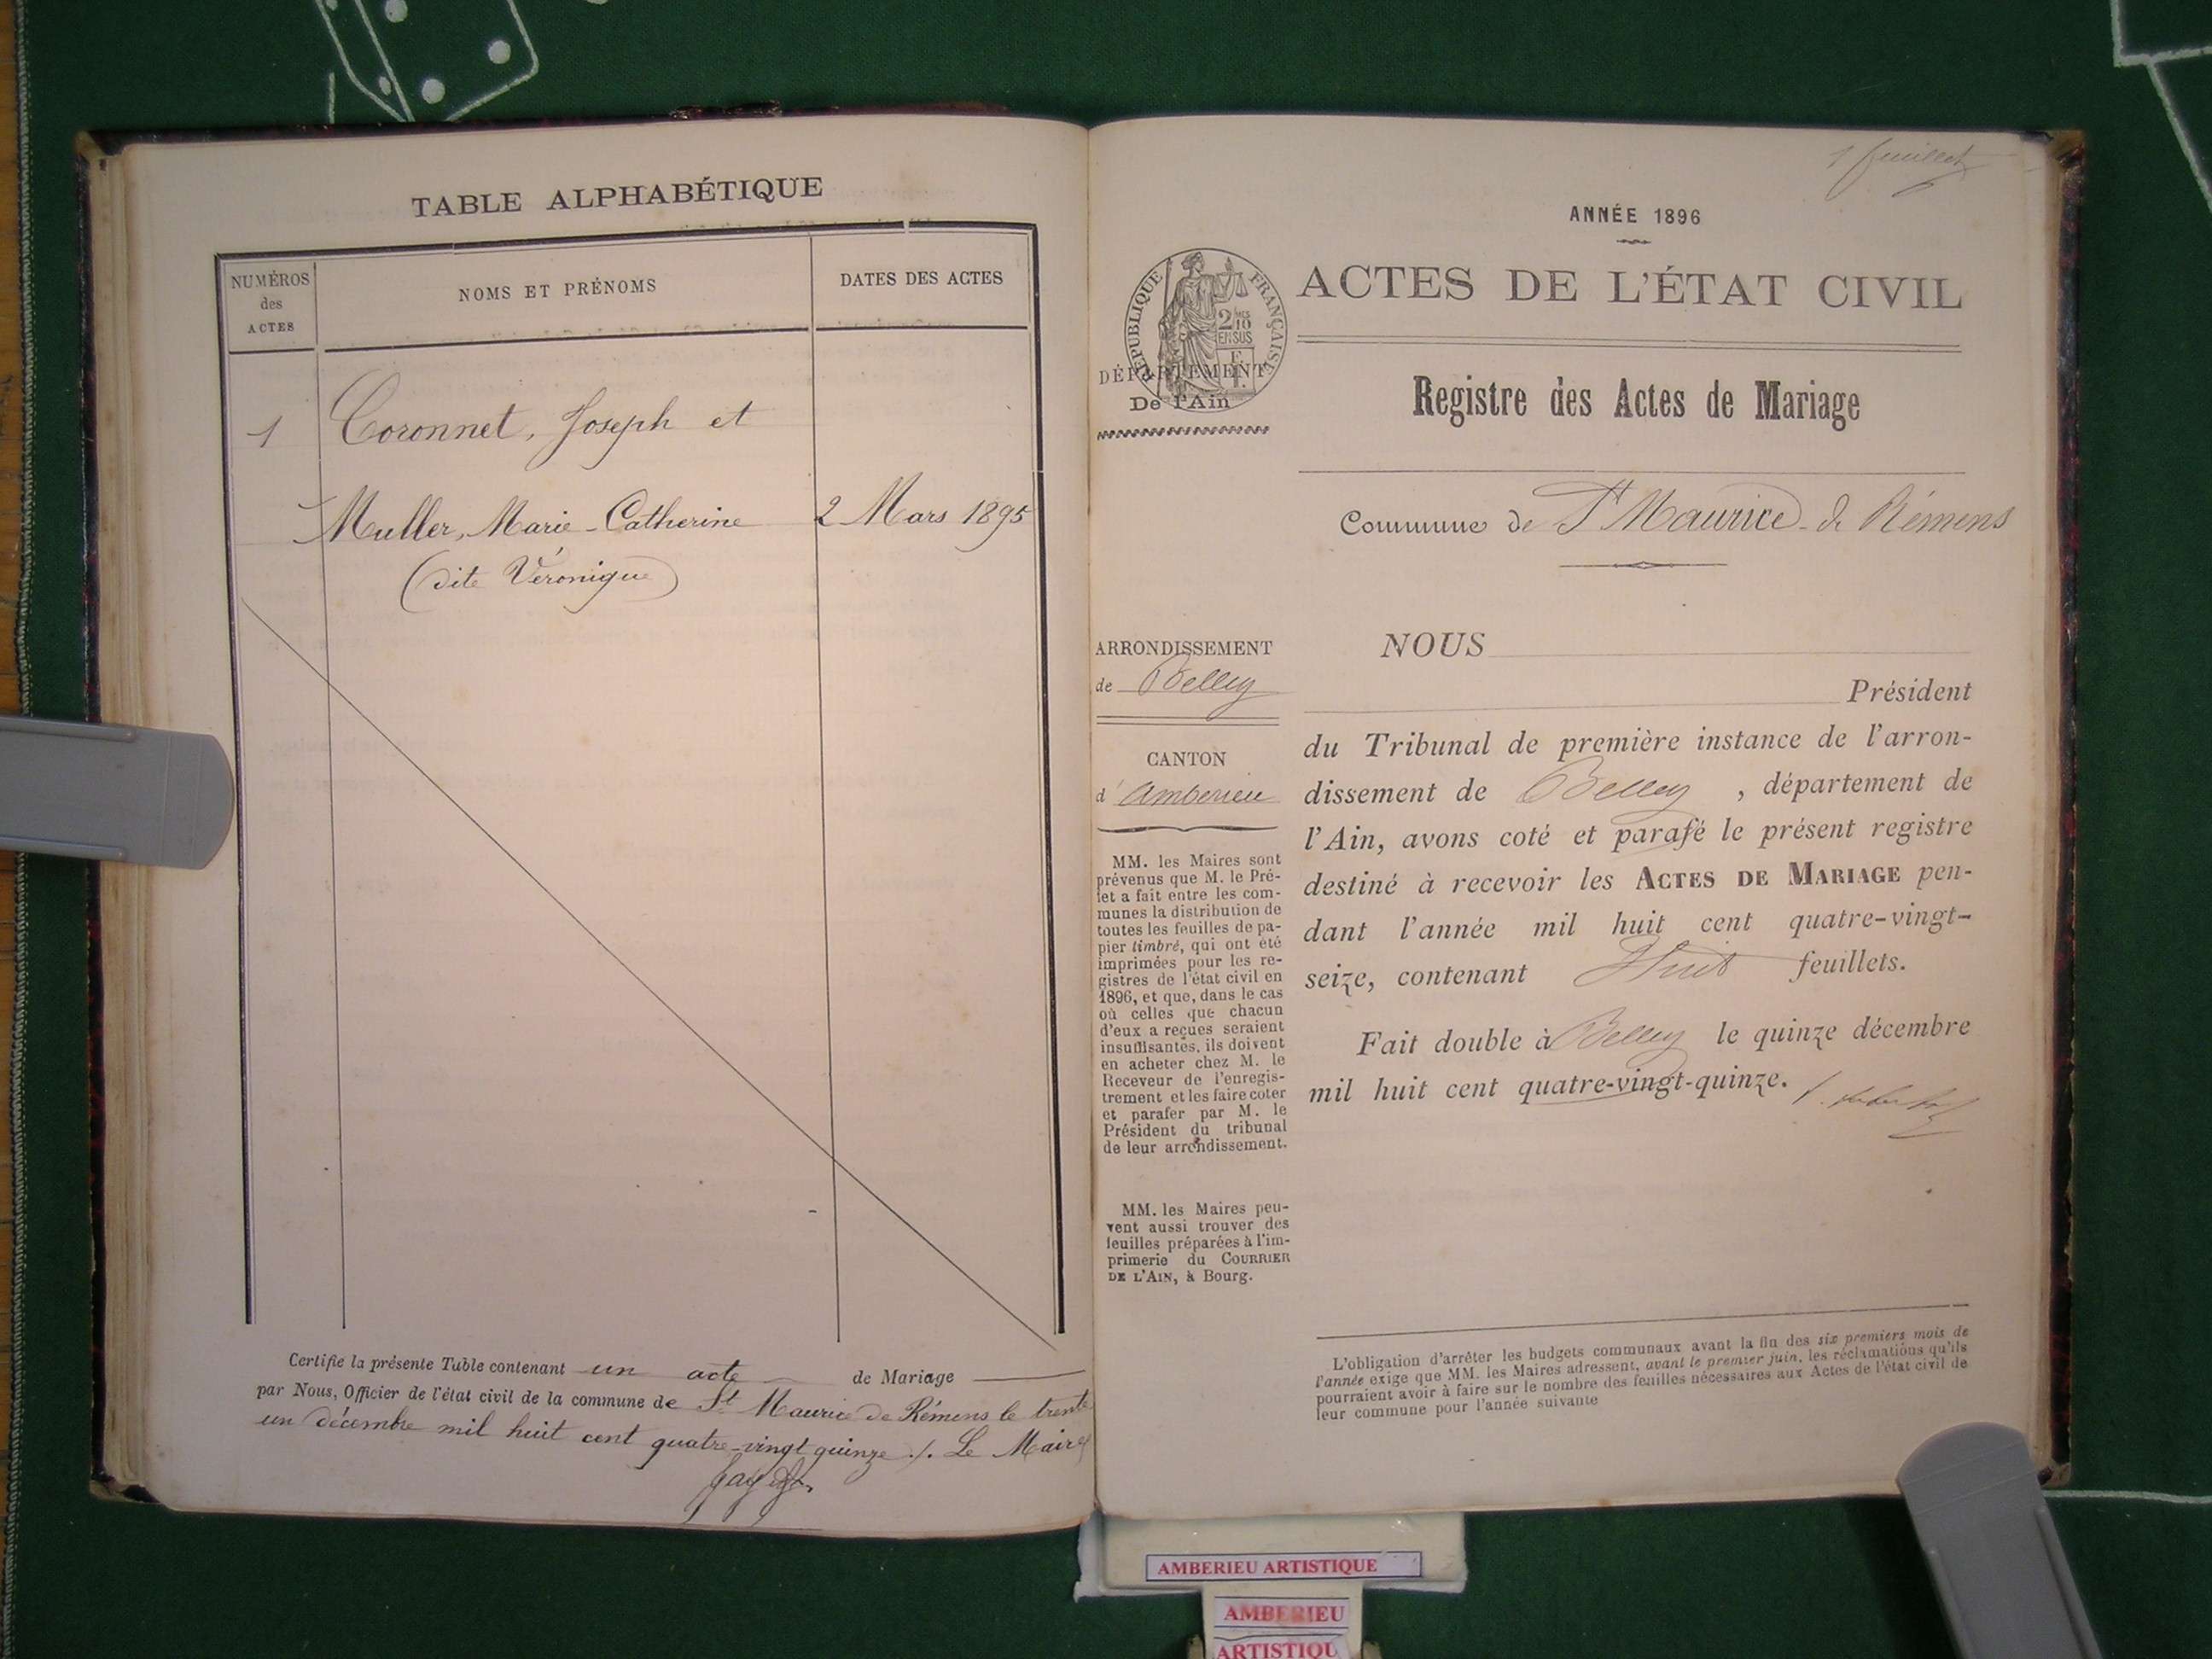 TABLE ALPHABÉTIQUE
NUMÉROS
des
ACTES
NOMS ET PRÉNOMS
DATES DES ACTES
1 Coronnet, Joseph et
Muller, Marie-Catherine 2 Mars 1895
(dite Véronique)
Certifie la présente Table contenant un acte de Mariage
par Nous, Officier de l'état civil de la commune de St Maurice de Rémens le trente
un décembre mil huit cent quatre-vingt quinze ./. Le Maire
1 feuillet
ANNÉE 1896
RÉPUBLIQUE FRANÇAISE
2 MES
10
EN SUS
ACTES DE L'ÉTAT CIVIL
DÉPARTEMENT
De l'Ain
Registre des Actes de Mariage
Commune de St Maurice-de Rémens
ARRONDISSEMENT
de Belley
CANTON
d'Amberieu
MM. les Maires sont
prévenus que M. le Pré-
fet a fait entre les com-
munes la distribution de
toutes les feuilles de pa-
pier timbré, qui ont été
imprimées pour les re-
gistres de l'état civil en
1896, et que, dans le cas
où celles que chacun
d'eux a reçues seraient
insuffisantes, ils doivent
en acheter chez M. le
Receveur de l'enregis-
trement et les faire coter
et parafer par M. le
Président du tribunal
de leur arrondissement.
MM. les Maires peu-
vent aussi trouver des
feuilles préparées à l'im-
primerie du COURRIER
DE L'AIN, à Bourg.
NOUS
Président
du Tribunal de première instance de l'arron-
dissement de Belley, département de
l'Ain, avons coté et parafé le présent registre
destiné à recevoir les ACTES DE MARIAGE pen-
dant l'année mil huit cent quatre-vingt-
seize, contenant Huit feuillets.
Fait double à Belley le quinze décembre
mil huit cent quatre-vingt-quinze.
L'obligation d'arrêter les budgets communaux avant la fin des six premiers mois de
l'année exige que MM. les Maires adressent, avant le premier juin, les réclamations qu'ils
pourraient avoir à faire sur le nombre des feuilles nécessaires aux Actes de l'état civil de
leur commune pour l'année suivante
AMBERIEU ARTISTIQUE
AMBERIEU
ARTISTIQU